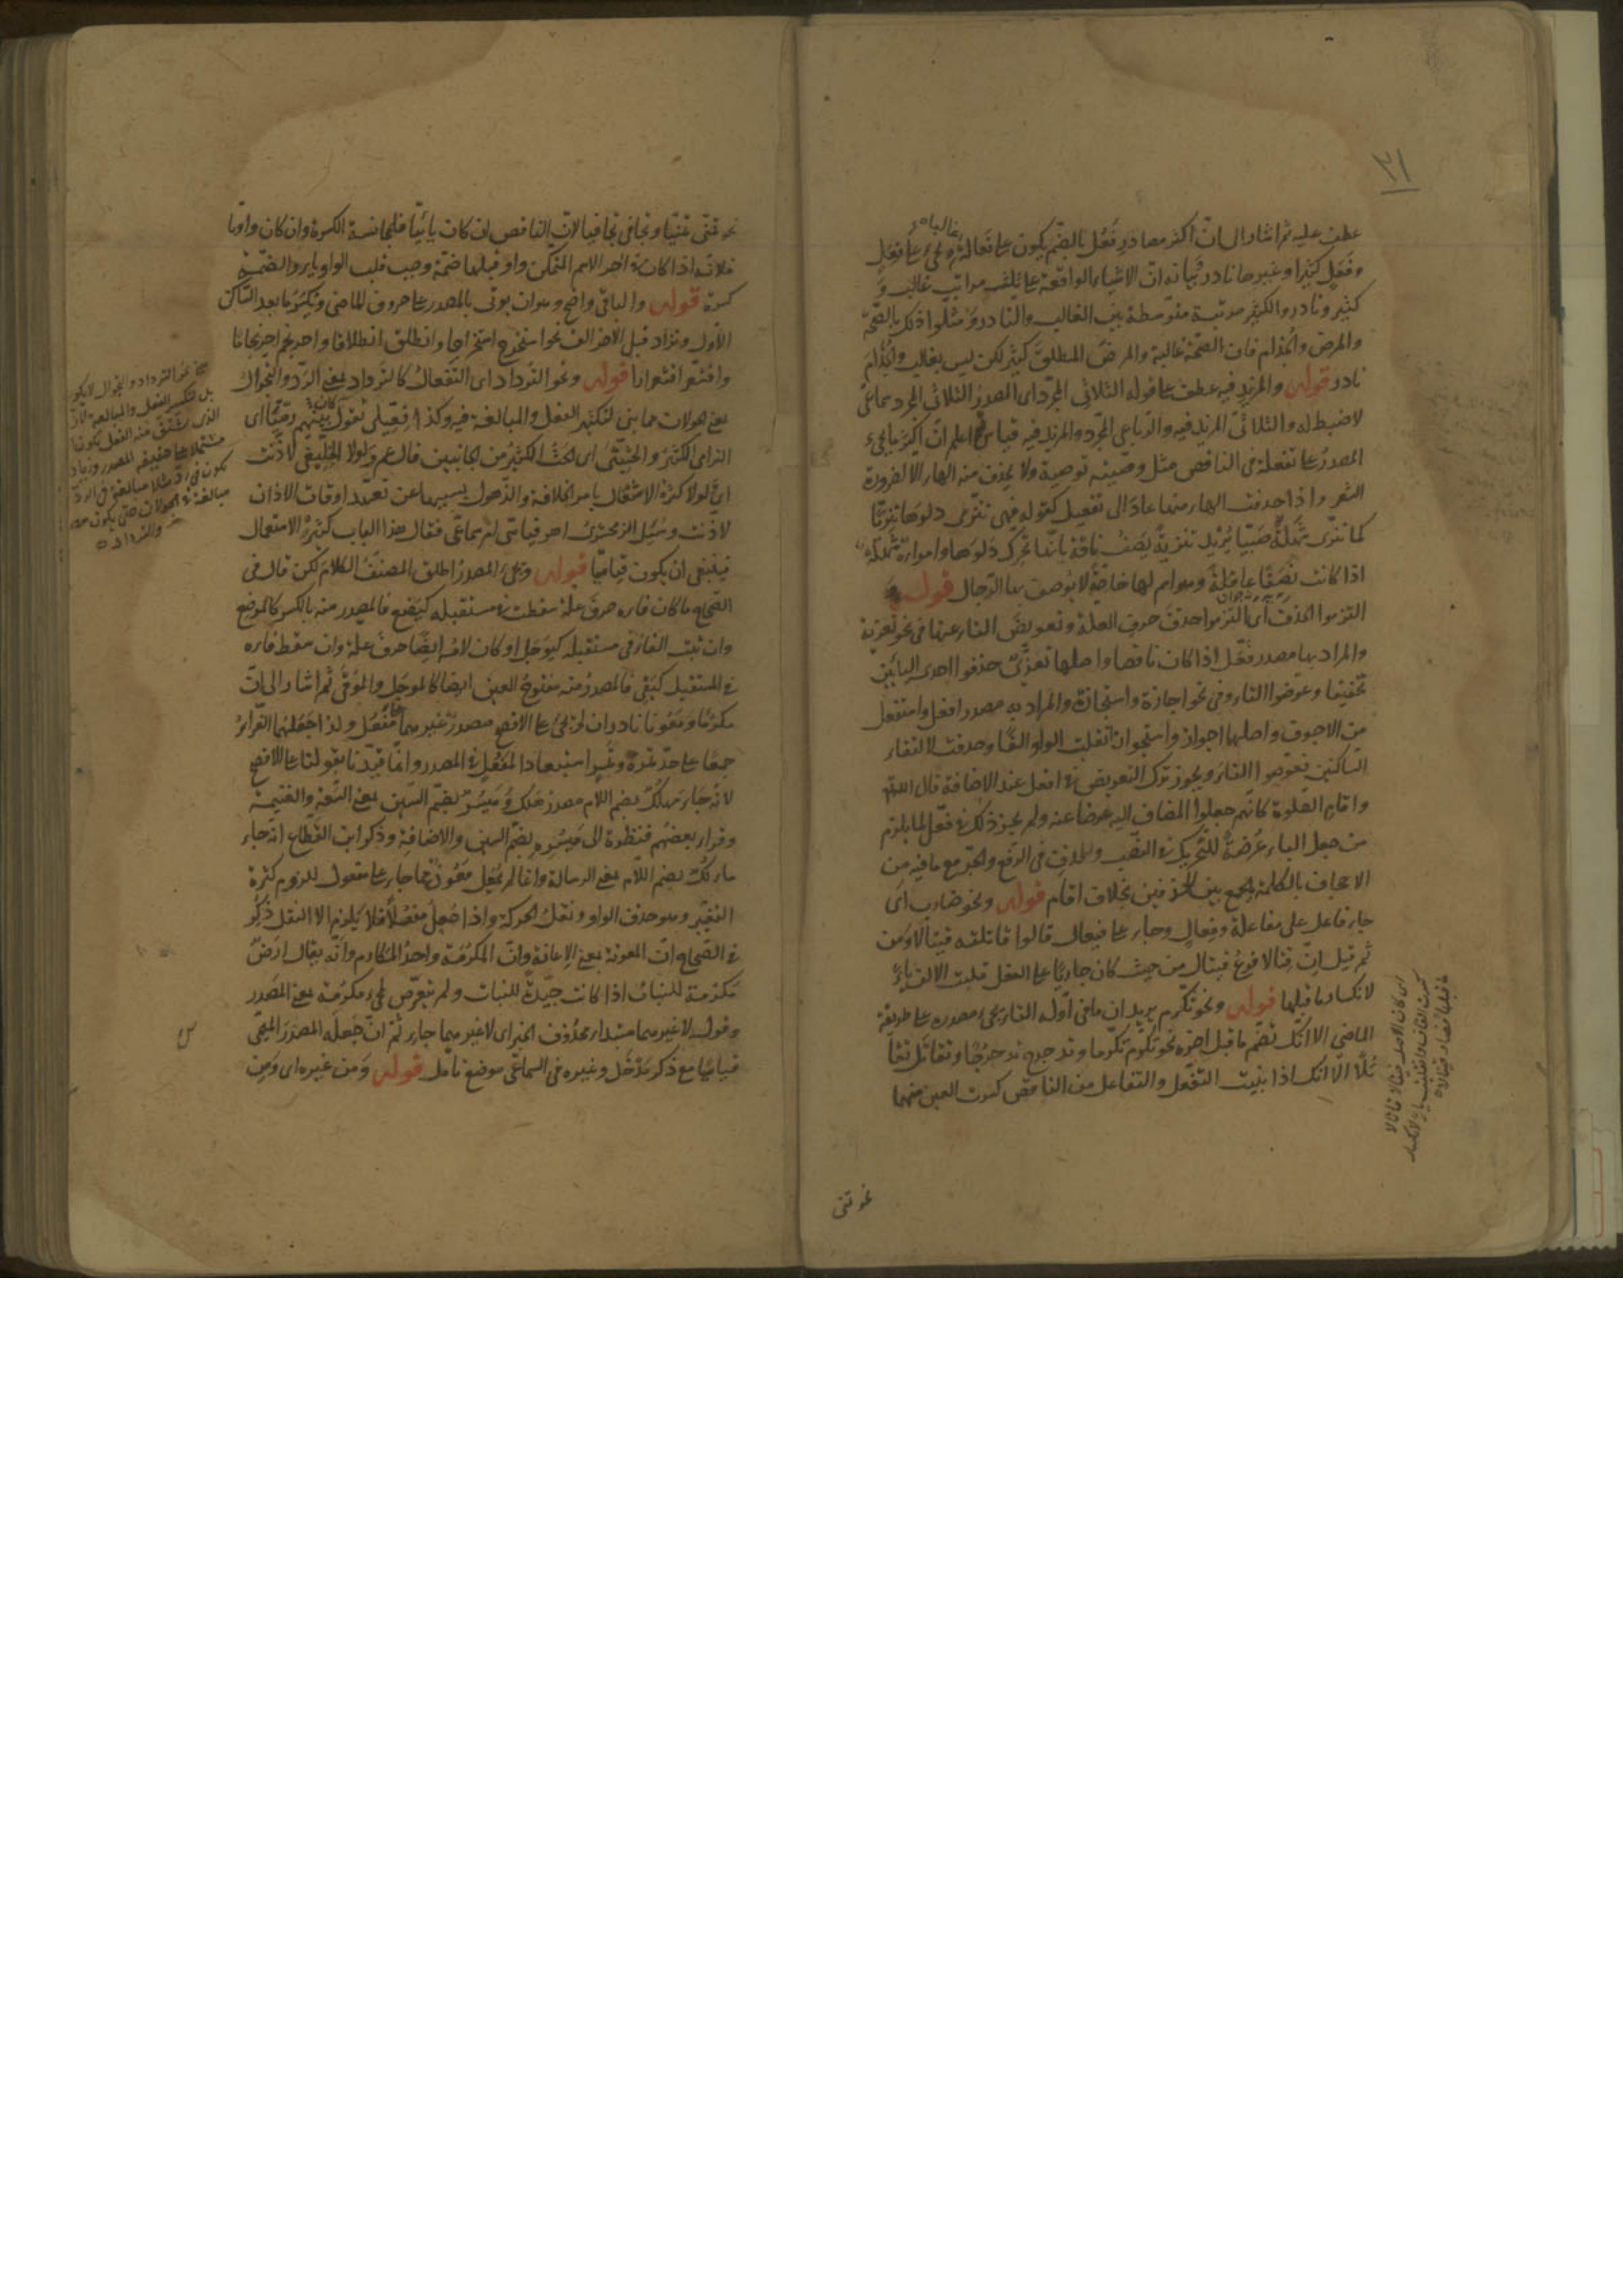 ٣١
عطف عليه ثم اشار الى ان اكثر مصادر فَعُل بالضم يكون على فَعالة غالبا ويجئ على فِعَلٍ
وفَعَلٍ كثيرا وغيرهما نادر وبيانه ان الاشياء الواقعة على ثلث مراتب غالب و
كثير ونادر والكثير مرتبة متوسطة بين الغالب والنادر ومثلوا ذلك بالصحة
والمرض والجذام فان الصحة غالبة والمرض المطلق كثير لكن ليس بغالب والجُذام
نادر قوله والمزيد فيه عطف على قوله الثلاثى المجرد اى المصدر الثلاثى المجرد سماعى
لا ضبط له والثلاثى المزيد فيه والرباعى المجرد والمزيد فيه قياس ثم اعلم ان اكثر ما يجئ
المصدر على تفعلة فى الناقص مثل وصيته توصية ولا يحذف منه الهاء الا لضرورة
الشعر واذا حذفت الهاء منها عاد الى تفعيل كقوله فهى تنزى دلوها تنزيًّا
كما تنزى شهلةٌ صبيّا يُريد تنزيةً يصف ناقة بانها تحرك دلوها وامرأة شهلة
اذا كانت نَصَفًا عاقلةً وهو اسم لها خاصّة لا يوصف بها الرجال قوله
التزموا الحذف اى التزموا حذف حرف العلة وتعويض التاء عنها فى نحو تعزية
والمراد بها مصدر فَعّل اذا كان ناقصا واصلها تعزّى حذفوا احدى اليائين
تخفيفا وعوّضوا التاء وفى نحو اجازة واستجازة والمراد به مصدر افعل واستفعل
من الاجوف واصلهما اجواز واستجواز انقلبت الواو الفًا وحذفت لالتقاء
الساكنين فعوضوا التاء ويجوز ترك التعويض فى افعل عند الاضافة قال الله
واقام الصلوة كانهم جعلوا المضاف اليه عوضا عنه ولم يجز ذلك فى فعّل لما يلزم
من جعل الياء عُرضةً للتحريك فى النصب والحذف فى الرفع والجر مع ما فيه من
الاجحاف بالكلمة بالجمع بين الحذفين بخلاف اقام قوله ونحو ضارب اى
جاء فاعل على مفاعلة وفِعال وجاء على فيعال قالوا قاتلته قيتالا ومن
ثم قيل انّ قتالا فرع قيتال من حيث كان جاريًا على الفعل قلبت الالف ياءً
لانكسار ما قبلها قوله ونحو تكرّم يريد ان ما فى اوله التاء يجئ مصدره على طريقة
الماضى الا انك تضم ما قبل اخره نحو تكرّم تكرّما وتدحرج تدحرُجًا وتقاتل تقا
تُلًا الّا انك اذا بنيت التفعّل والتفاعل من الناقص كسرت العين منهما
اى كان الاصل قيتالا قاتالا
كسرت القاف وانقلبت ياء لانكسار
ما قبلها فصار قيتالا
نحو تمنى
نحو تمنّى تمنّيا وتجافى تجافيا لان الناقص ان كان يائيّا فلمجانسة الكسرة وان كان واويّا
فلانه اذا كان فى اخر الاسم المتمكن واو قبلها ضمّة وجب قلب الواو ياء والضمة
كسرة قوله والباقى واضح وهو ان يؤتى بالمصدر على حروف الماضى ويُكسَر ما بعد الساكن
الاول ونزاد قبل الاخر الف نحو استخرج استخراجا وانطلق انطلاقا واحرنجم احرنجاما
واقشعر اقشعرارا قوله ونحو الترداد اى التفعال كالترداد بمعنى الرّد والتجوال
بمعنى الجولان مما بنى لتكثير الفعل والمبالغة فيه وكذا فِعّيلى تقول كان بينهم رِمّيّا اى
الترامى الكثير والحِثّيثى اى الحث الكثير من الجانبين قال عمر ولولا الخِلّيفى لاذّنت
اى لولا كثرة الاشتغال بامر الخلافة والذهول بسببها عن تعهّد اوقات الاذان
لاذّنت وسُئِل الزمخشرى اهو قياسى ام سماعى فقال هذا الباب كثير الاستعمال
فينبغى ان يكون قياسيّا قوله ويجئ المصدر اطلق المصنف الكلام لكن قال فى
الصحاح ما كان فاءه حرف علة سقطت فى مستقبله كيَضع فالمصدر منه بالكسر كالموضع
وان ثبت الفاء فى مستقبله كيوجل او كان لامه ايضًا حرف علة وان سقط فاءه
فى المستقبل كيَقى فالمصدر منه مفتوح العين ايضا كالموجَل والموقى ثم اشار الى ان
مكرُمًا ومَعُونا نادران لم يجئ على الافصح مصدرٌ غيرهما على مَفعُل ولذا جعلهما الفراء
جمعًا على حدّ تمرة وتمر استبعادا لمَفعُلٍ فى المصدر وانما قيّدنا بقولنا على الافصح
لانه جاء مهلُكٌ بضم اللام مصدر هلك ومَيسُرٌ بضم السين بمعنى السعة والغنيمة
وقراء بعضهم فنظرة الى مَيسُرِهِ بضم السين والاضافة وذكر ابن القطاع انه جاء
مأْلُكٌ بضم اللام بمعنى الرسالة وانما لم يُجعل مَعُونٌ مما جاء على مفعول للزوم كثرة
التغيّر وهو حذف الواو ونقل الحركة واذا جُعِلَ مَفعُلًا فلا يلزم الا النقل ذكر
فى الصحاح ان المعونة بمعنى الاعانة وانّ المكرُمَة واحد المكارم وانه يقال ارض
مَكرُمة للنبات اذا كانت جيّدةً للنبات ولم يتعرّض لمجئ مكرُمة بمعنى المصدر
وقوله لا غيرهما مبتداء محذوف الخبر اى لا غيرهما جاء ثم ان جَعلَه المصدر الميمى
قياسيّا مع ذكر مَدخَل وغيره فى السماعى موضع تأمل قوله ومن غيره اى ومن
نحو الترداد والتجوال لا يكون
بل لتكثير الفعل والمبالغة لان
الذى يشتق منه الفعل يكون
مشتملا على حقيقة المصدر وزيادة